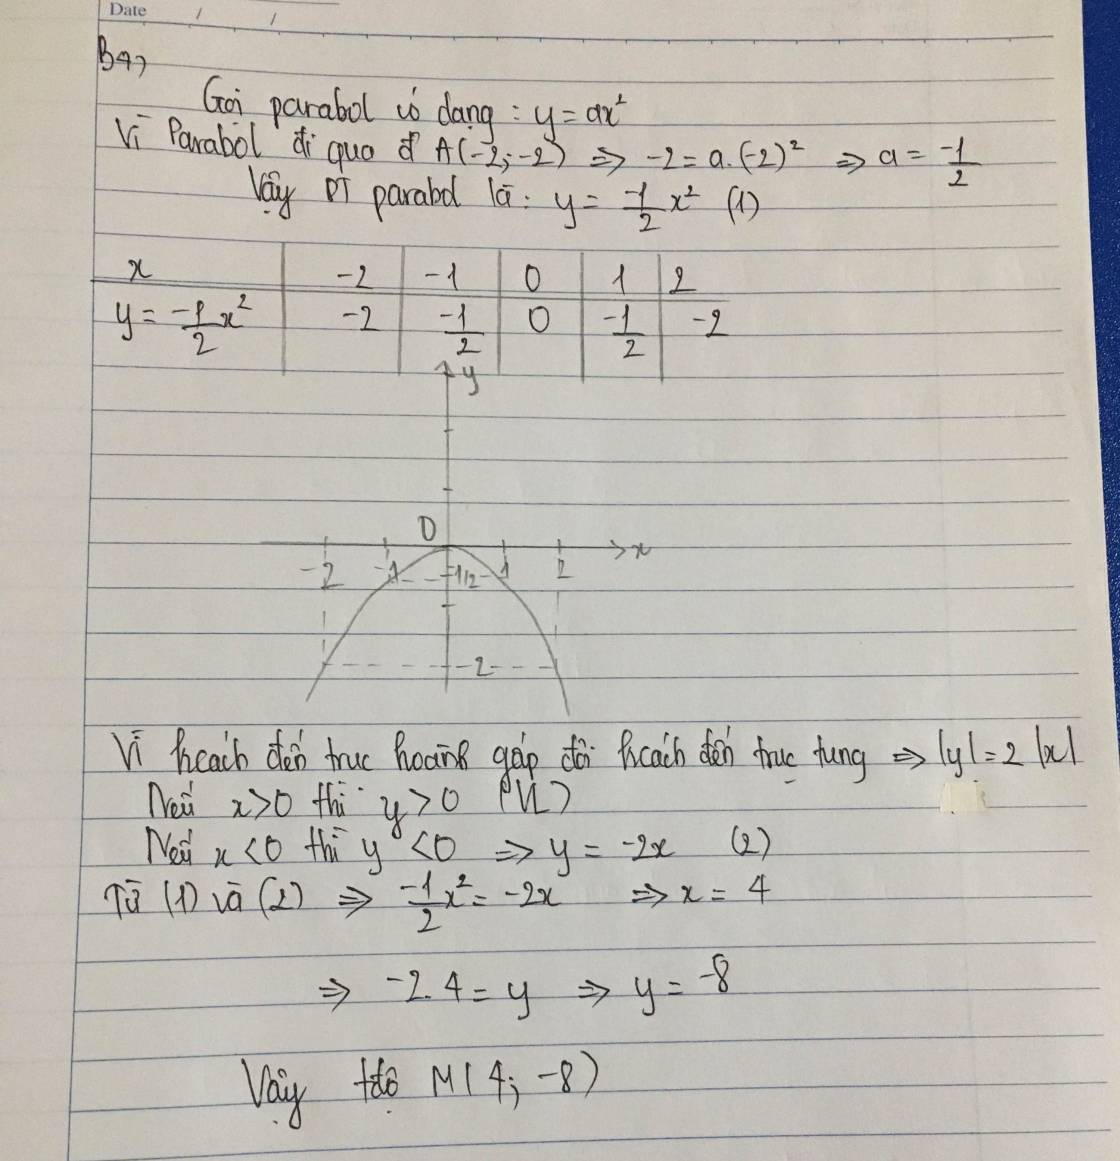 Date / /
B4,
Gọi parabol có dạng : y = ax²
Vì Parabol đi qua đ A(-2; -2) => -2 = a.(-2)² => a = -1/2
Vậy PT parabol là: y = -1/2 x² (1)
x -2 -1 0 1 2
y = -1/2 x² -2 -1/2 0 -1/2 -2
y
0
x
-2 -1 -1/2 1 2
-2
Vì kcách đến trục hoành gấp đôi kcách đến trục tung => |y| = 2 |x|
Nếu x>0 thì y>0 (VL)
Nếu x<0 thì y<0 => y = -2x (2)
Từ (1) và (2) => -1/2 x² = -2x => x = 4
=> -2.4 = y => y = -8
Vậy tđộ M(4; -8)